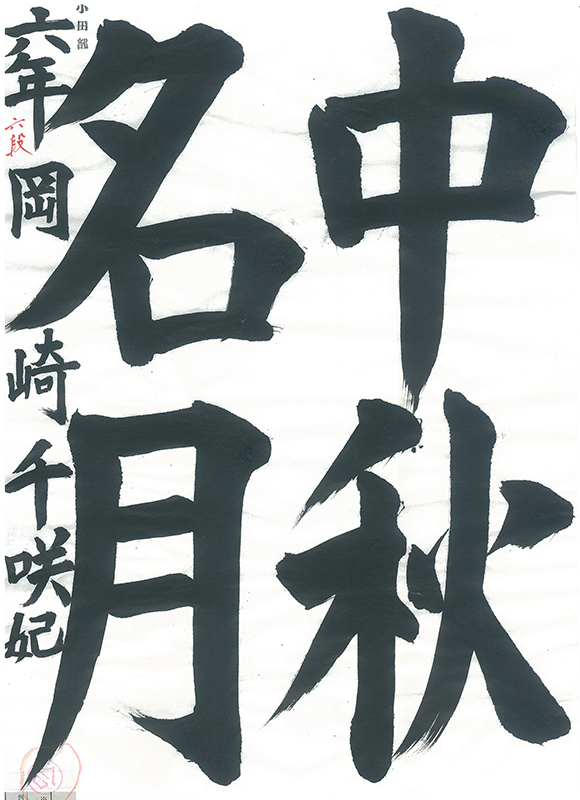 中秋
名月
小田部
六年 岡崎千咲妃
六段